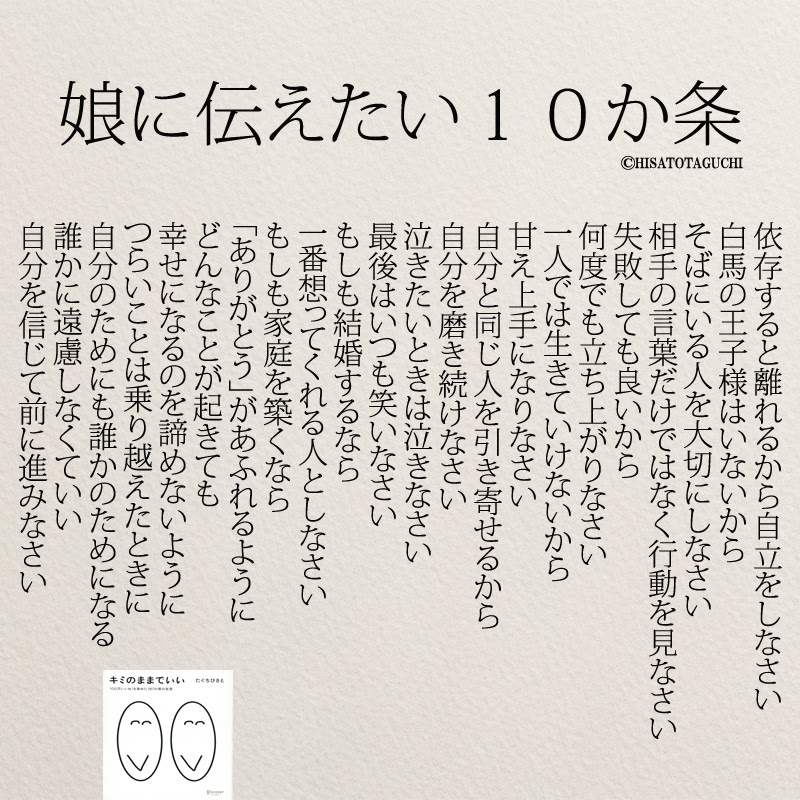 娘に伝えたい１０か条
©HISATOTAGUCHI
依存すると離れるから自立をしなさい
白馬の王子様はいないから
そばにいる人を大切にしなさい
相手の言葉だけではなく行動を見なさい
失敗しても良いから
何度でも立ち上がりなさい
一人では生きていけないから
甘え上手になりなさい
自分と同じ人を引き寄せるから
自分を磨き続けなさい
泣きたいときは泣きなさい
最後はいつも笑いなさい
もしも結婚するなら
一番想ってくれる人としなさい
もしも家庭を築くなら
「ありがとう」があふれるように
どんなことが起きても
幸せになるのを諦めないように
つらいことは乗り越えたときに
自分のためにも誰かのためになる
誰かに遠慮しなくていい
自分を信じて前に進みなさい
キミのままでいい
たぐちひさと